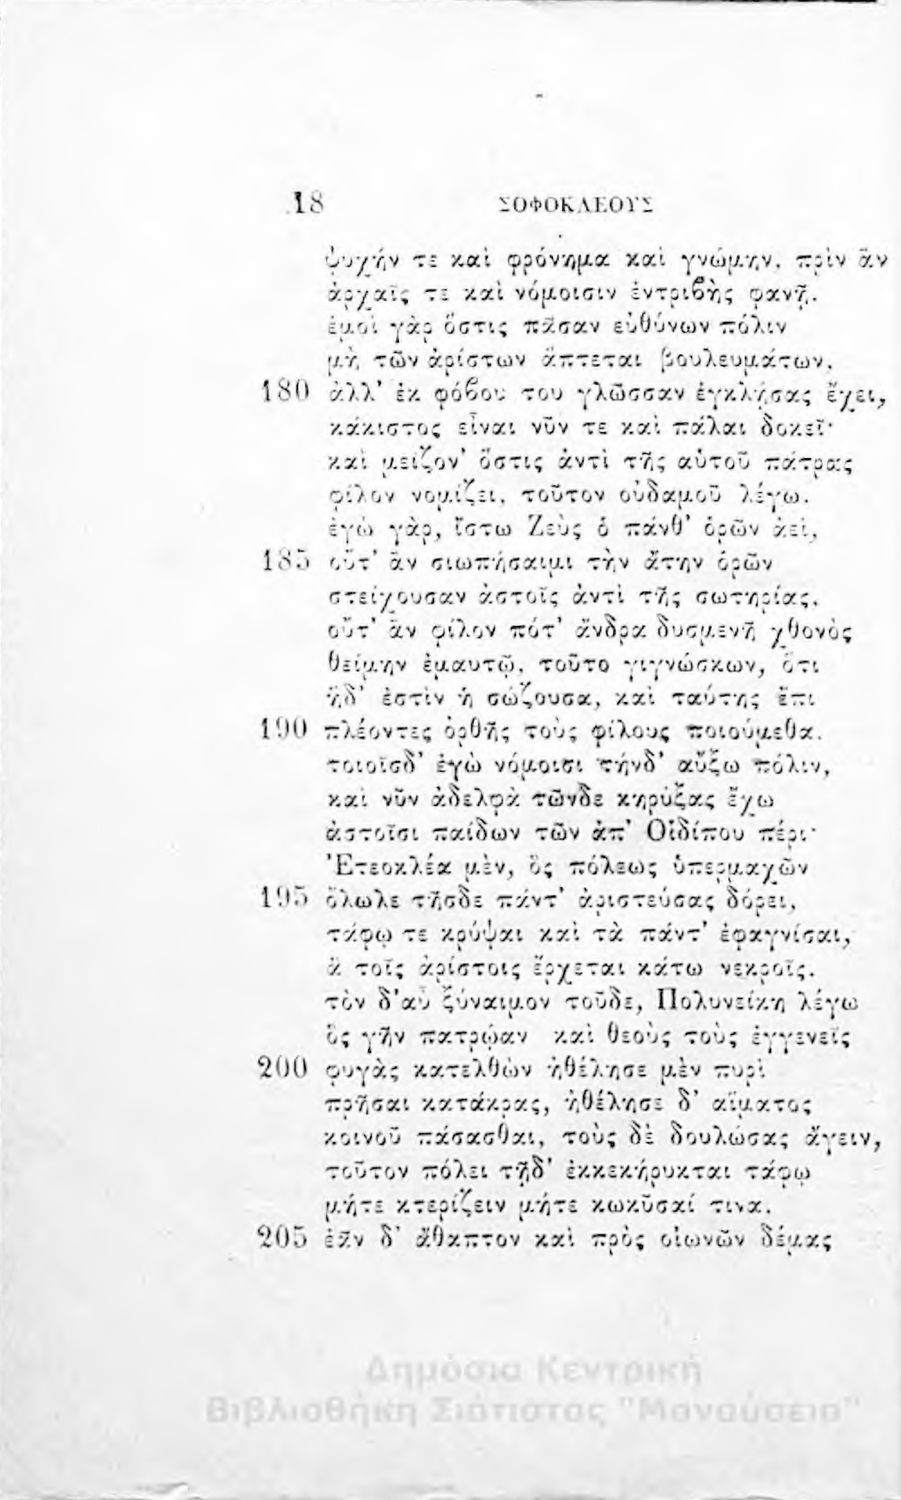 18 ΣΟΦΟΚΛΕΟΥΣ
ψυχήν τε καὶ φρόνημα καὶ γνώμην, πρὶν ἂν
ἀρχαῖς τε καὶ νόμοισιν ἐντριβὴς φανῇ.
ἐμοὶ γὰρ ὅστις πᾶσαν εὐθύνων πόλιν
μὴ τῶν ἀρίστων ἅπτεται βουλευμάτων,
180 ἀλλ' ἐκ φόβου του γλῶσσαν ἐγκλῄσας ἔχει,
κάκιστος εἶναι νῦν τε καὶ πάλαι δοκεῖ·
καὶ μεῖζον' ὅστις ἀντὶ τῆς αὑτοῦ πάτρας
φίλον νομίζει, τοῦτον οὐδαμοῦ λέγω.
ἐγὼ γὰρ, ἴστω Ζεὺς ὁ πάνθ' ὁρῶν ἀεί,
185 οὔτ' ἂν σιωπήσαιμι τὴν ἄτην ὁρῶν
στείχουσαν ἀστοῖς ἀντὶ τῆς σωτηρίας,
οὔτ' ἂν φίλον πότ' ἄνδρα δυσμενῆ χθονὸς
θείμην ἐμαυτῷ, τοῦτο γιγνώσκων, ὅτι
ἥδ' ἐστὶν ἡ σῴζουσα, καὶ ταύτης ἔπι
190 πλέοντες ὀρθῆς τοὺς φίλους ποιούμεθα.
τοιοῖσδ' ἐγὼ νόμοισι τήνδ' αὔξω πόλιν,
καὶ νῦν ἀδελφὰ τῶνδε κηρύξας ἔχω
ἀστοῖσι παίδων τῶν ἀπ' Οἰδίπου πέρι·
Ἐτεοκλέα μὲν, ὃς πόλεως ὑπερμαχῶν
195 ὄλωλε τῆσδε πάντ' ἀριστεύσας δόρει,
τάφῳ τε κρύψαι καὶ τὰ πάντ' ἐφαγνίσαι,
ἃ τοῖς ἀρίστοις ἔρχεται κάτω νεκροῖς.
τὸν δ'αὖ ξύναιμον τοῦδε, Πολυνείκη λέγω
ὃς γῆν πατρῴαν καὶ θεοὺς τοὺς ἐγγενεῖς
200 φυγὰς κατελθὼν ἠθέλησε μὲν πυρὶ
πρῆσαι κατάκρας, ἠθέλησε δ' αἵματος
κοινοῦ πάσασθαι, τοὺς δὲ δουλώσας ἄγειν,
τοῦτον πόλει τῇδ' ἐκκεκήρυκται τάφῳ
μήτε κτερίζειν μήτε κωκῦσαί τινα.
205 ἐᾶν δ' ἄθαπτον καὶ πρὸς οἰωνῶν δέμας
Δημόσια Κεντρική
Βιβλιοθήκη Σιάτιστας "Μανούσεια"